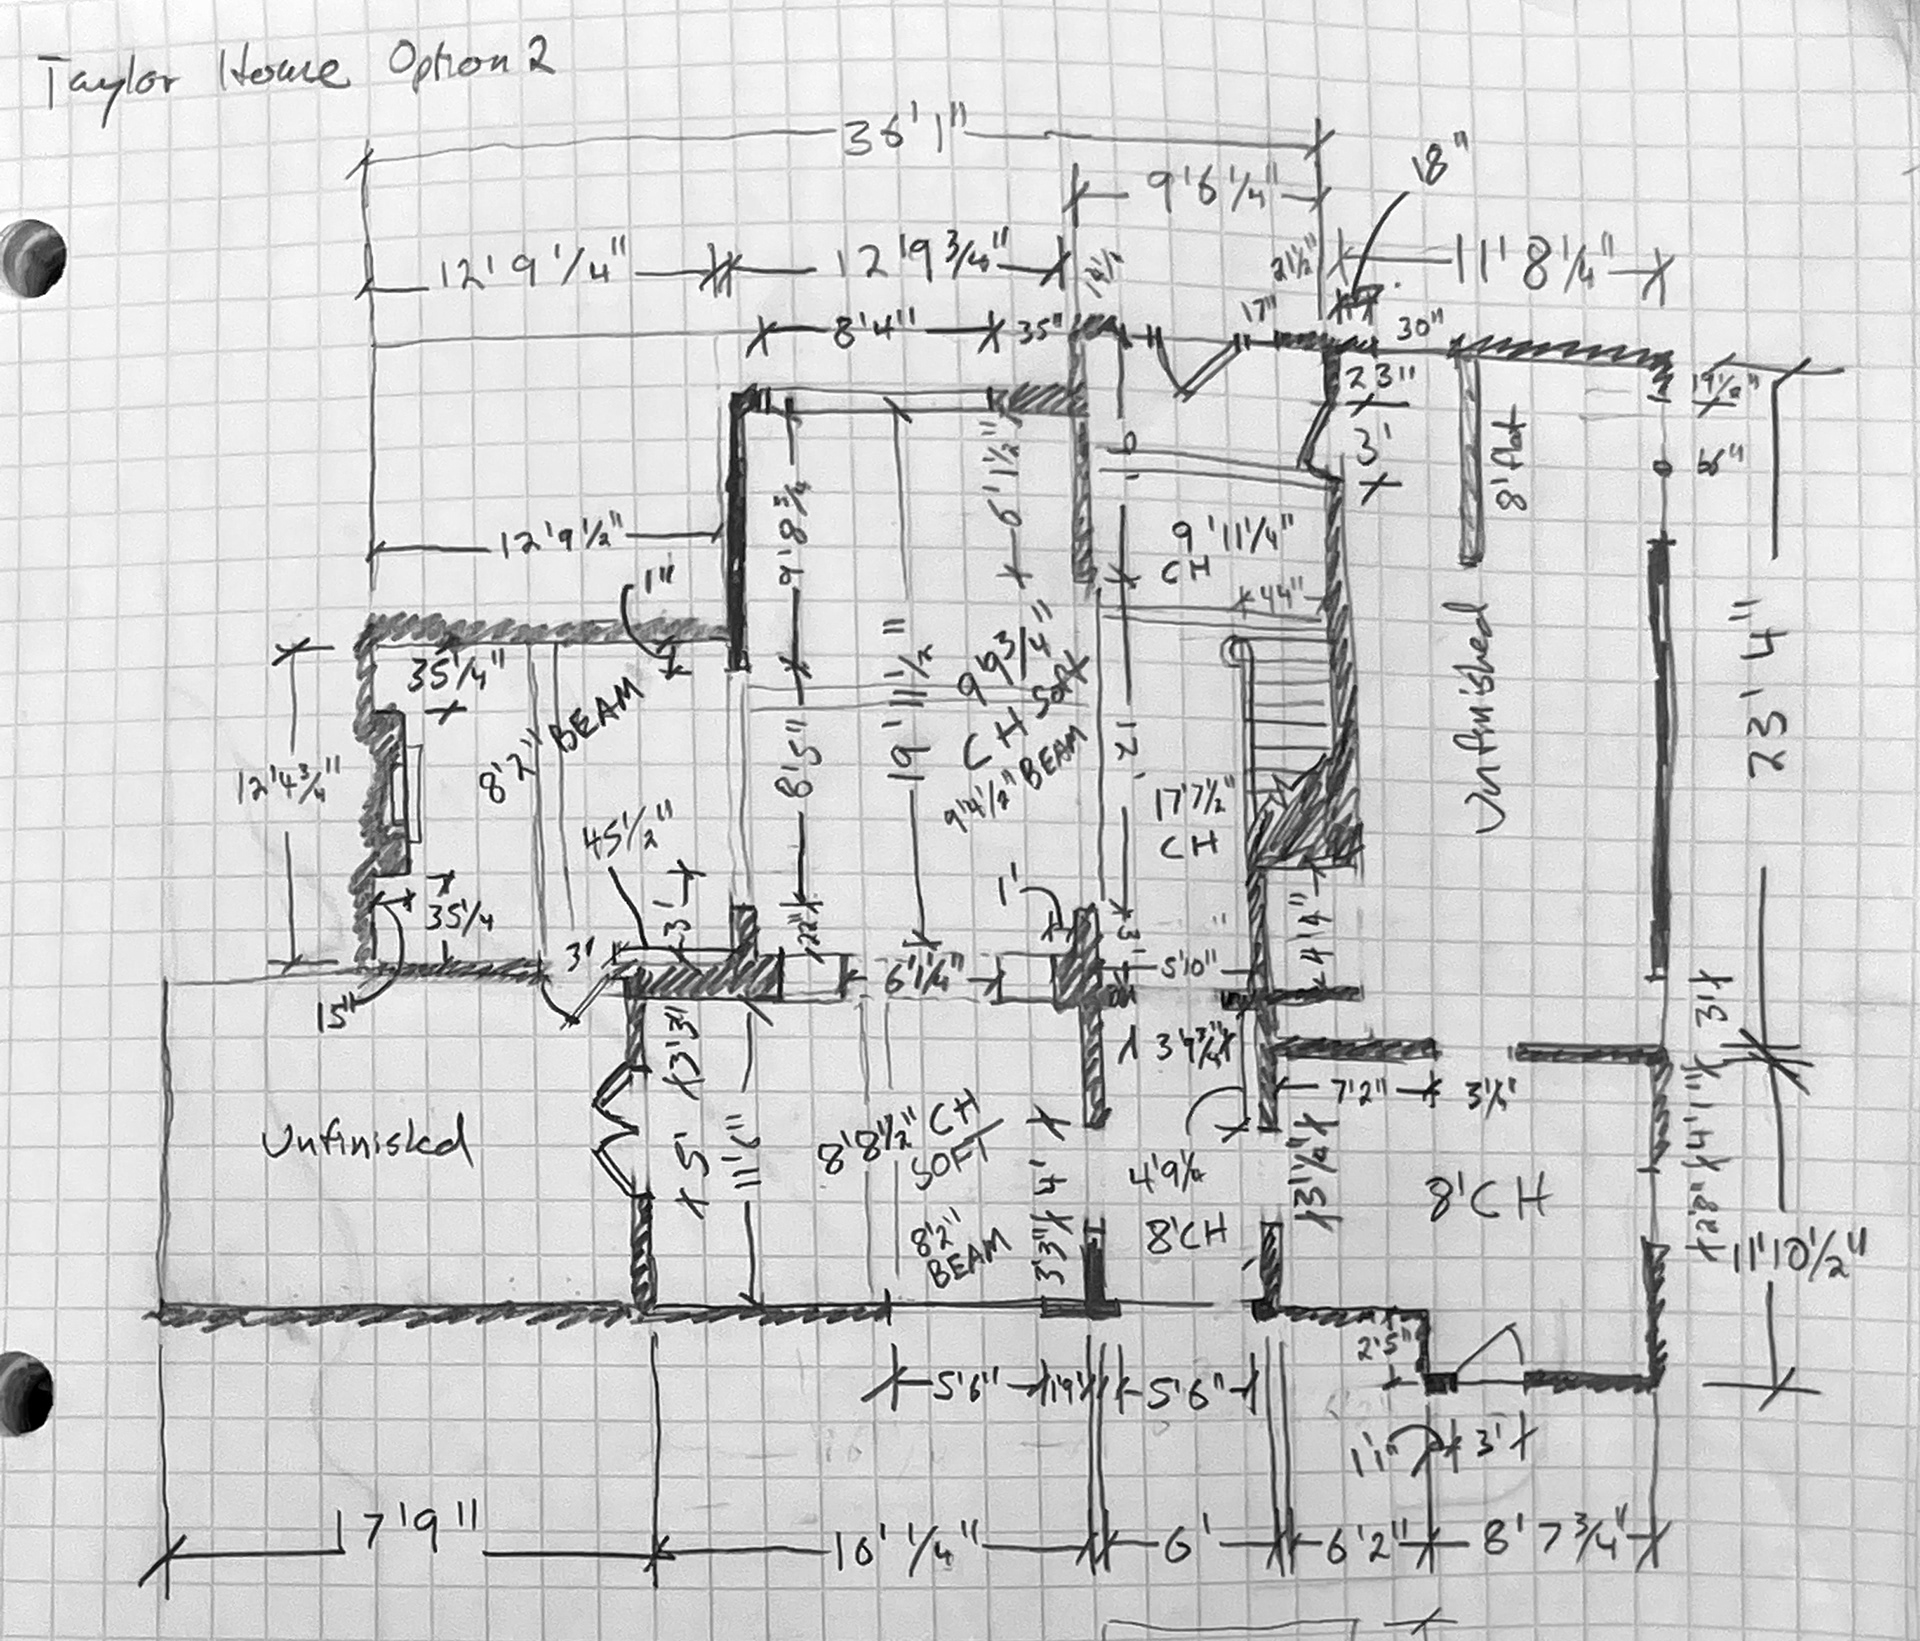 Taylor Home Option 2
36'1"
9'6 1/4"
18"
12'9 1/4"
12'9 3/4"
21 1/2"
11'8 1/4"
8'4"
35"
17"
30"
23"
19 1/2"
3'
66"
8' flat
12'9 1/2"
9'8 3/4
6'1 1/2"
9'11 1/4"
CH
44"
1"
35 1/4"
8'2" BEAM
9'9 3/4"
CH Soft
9'4 1/2" BEAM
8'5"
19'11 1/2"
12'
Unfinished
23'4"
12'4 3/4"
17'7 1/2"
CH
45 1/2"
35 1/4
15"
3'
23'
22"
1'
3'
6'1 1/4"
5'10"
3'
3'3"
3'7 3/4"
7'2"
4'1"
Unfinished
5'
11'6"
8'8 1/2" CH
SOFT
8'2"
BEAM
4'
3'3"
4'9 1/4
8'CH
3'1/2"
8'CH
28"
11'10 1/2"
2'5"
5'6"
1'9"
5'6"
1'1"
3'
17'9"
16' 1/4"
6'
6'2"
8'7 3/4"